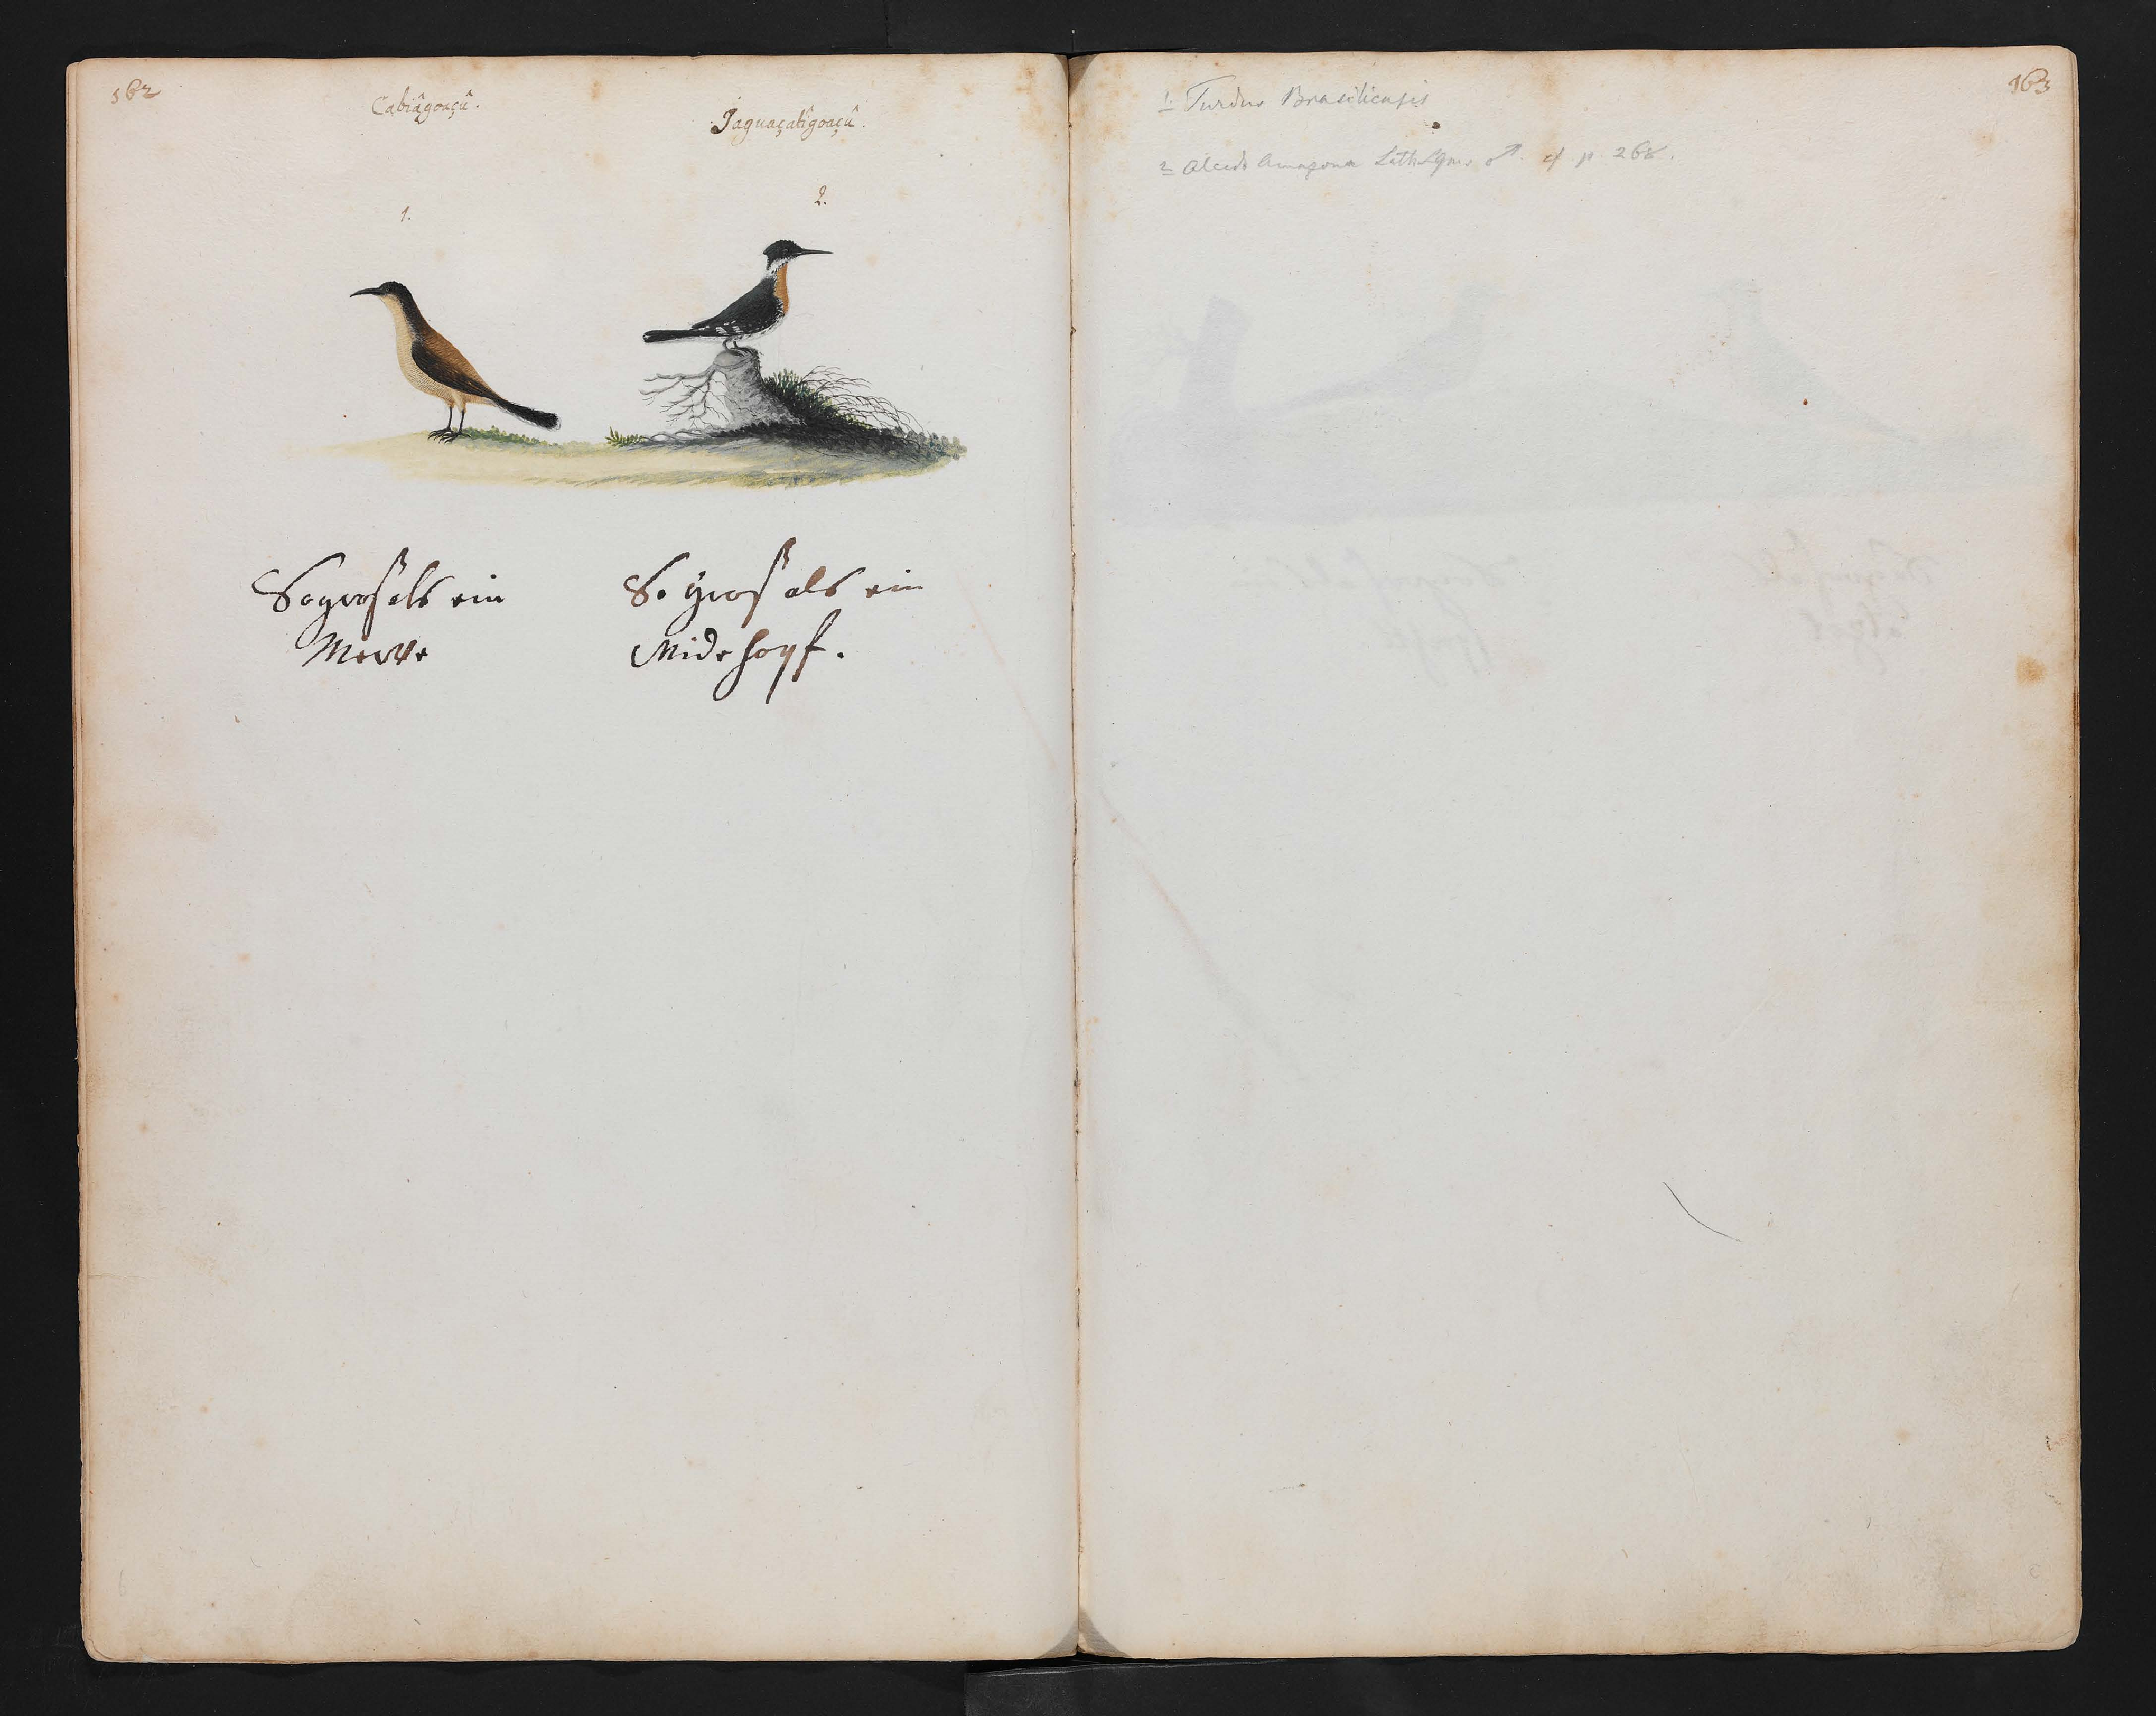 162
Cabiâgoaçû.
Jaguaçatigoaçû.
1.
2.
So groß als ein
Merrle
So groß als ein
Widehopf.
163
1. Turdus Brasiliensis
2 Alcedo Amazona Lath ♂ cf p. 268.